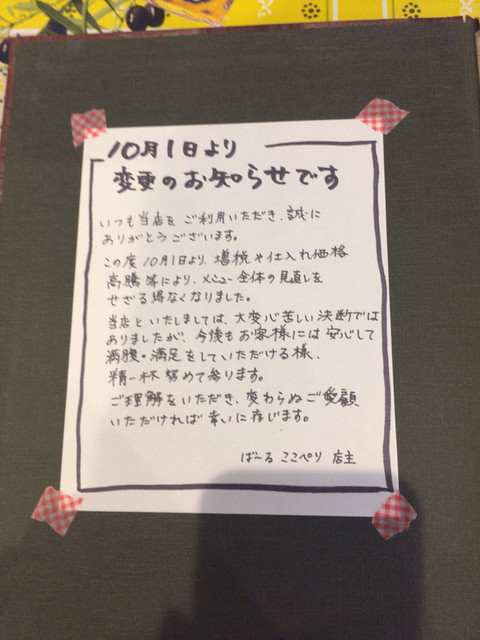 10月1日より
変更のお知らせです
いつも当店をご利用いただき、誠に
ありがとうございます。
この度10月1日より、増税や仕入れ価格
高騰等により、メニュー全体の見直しを
せざる得なくなりました。
当店といたしましては、大変心苦しい決断では
ありましたが、今後もお客様には安心して
満腹・満足をしていただける様、
精一杯努めて参ります。
ご理解をいただき、変わらぬご愛顧
いただければ幸いに存じます。
ば〜る ここぺり 店主